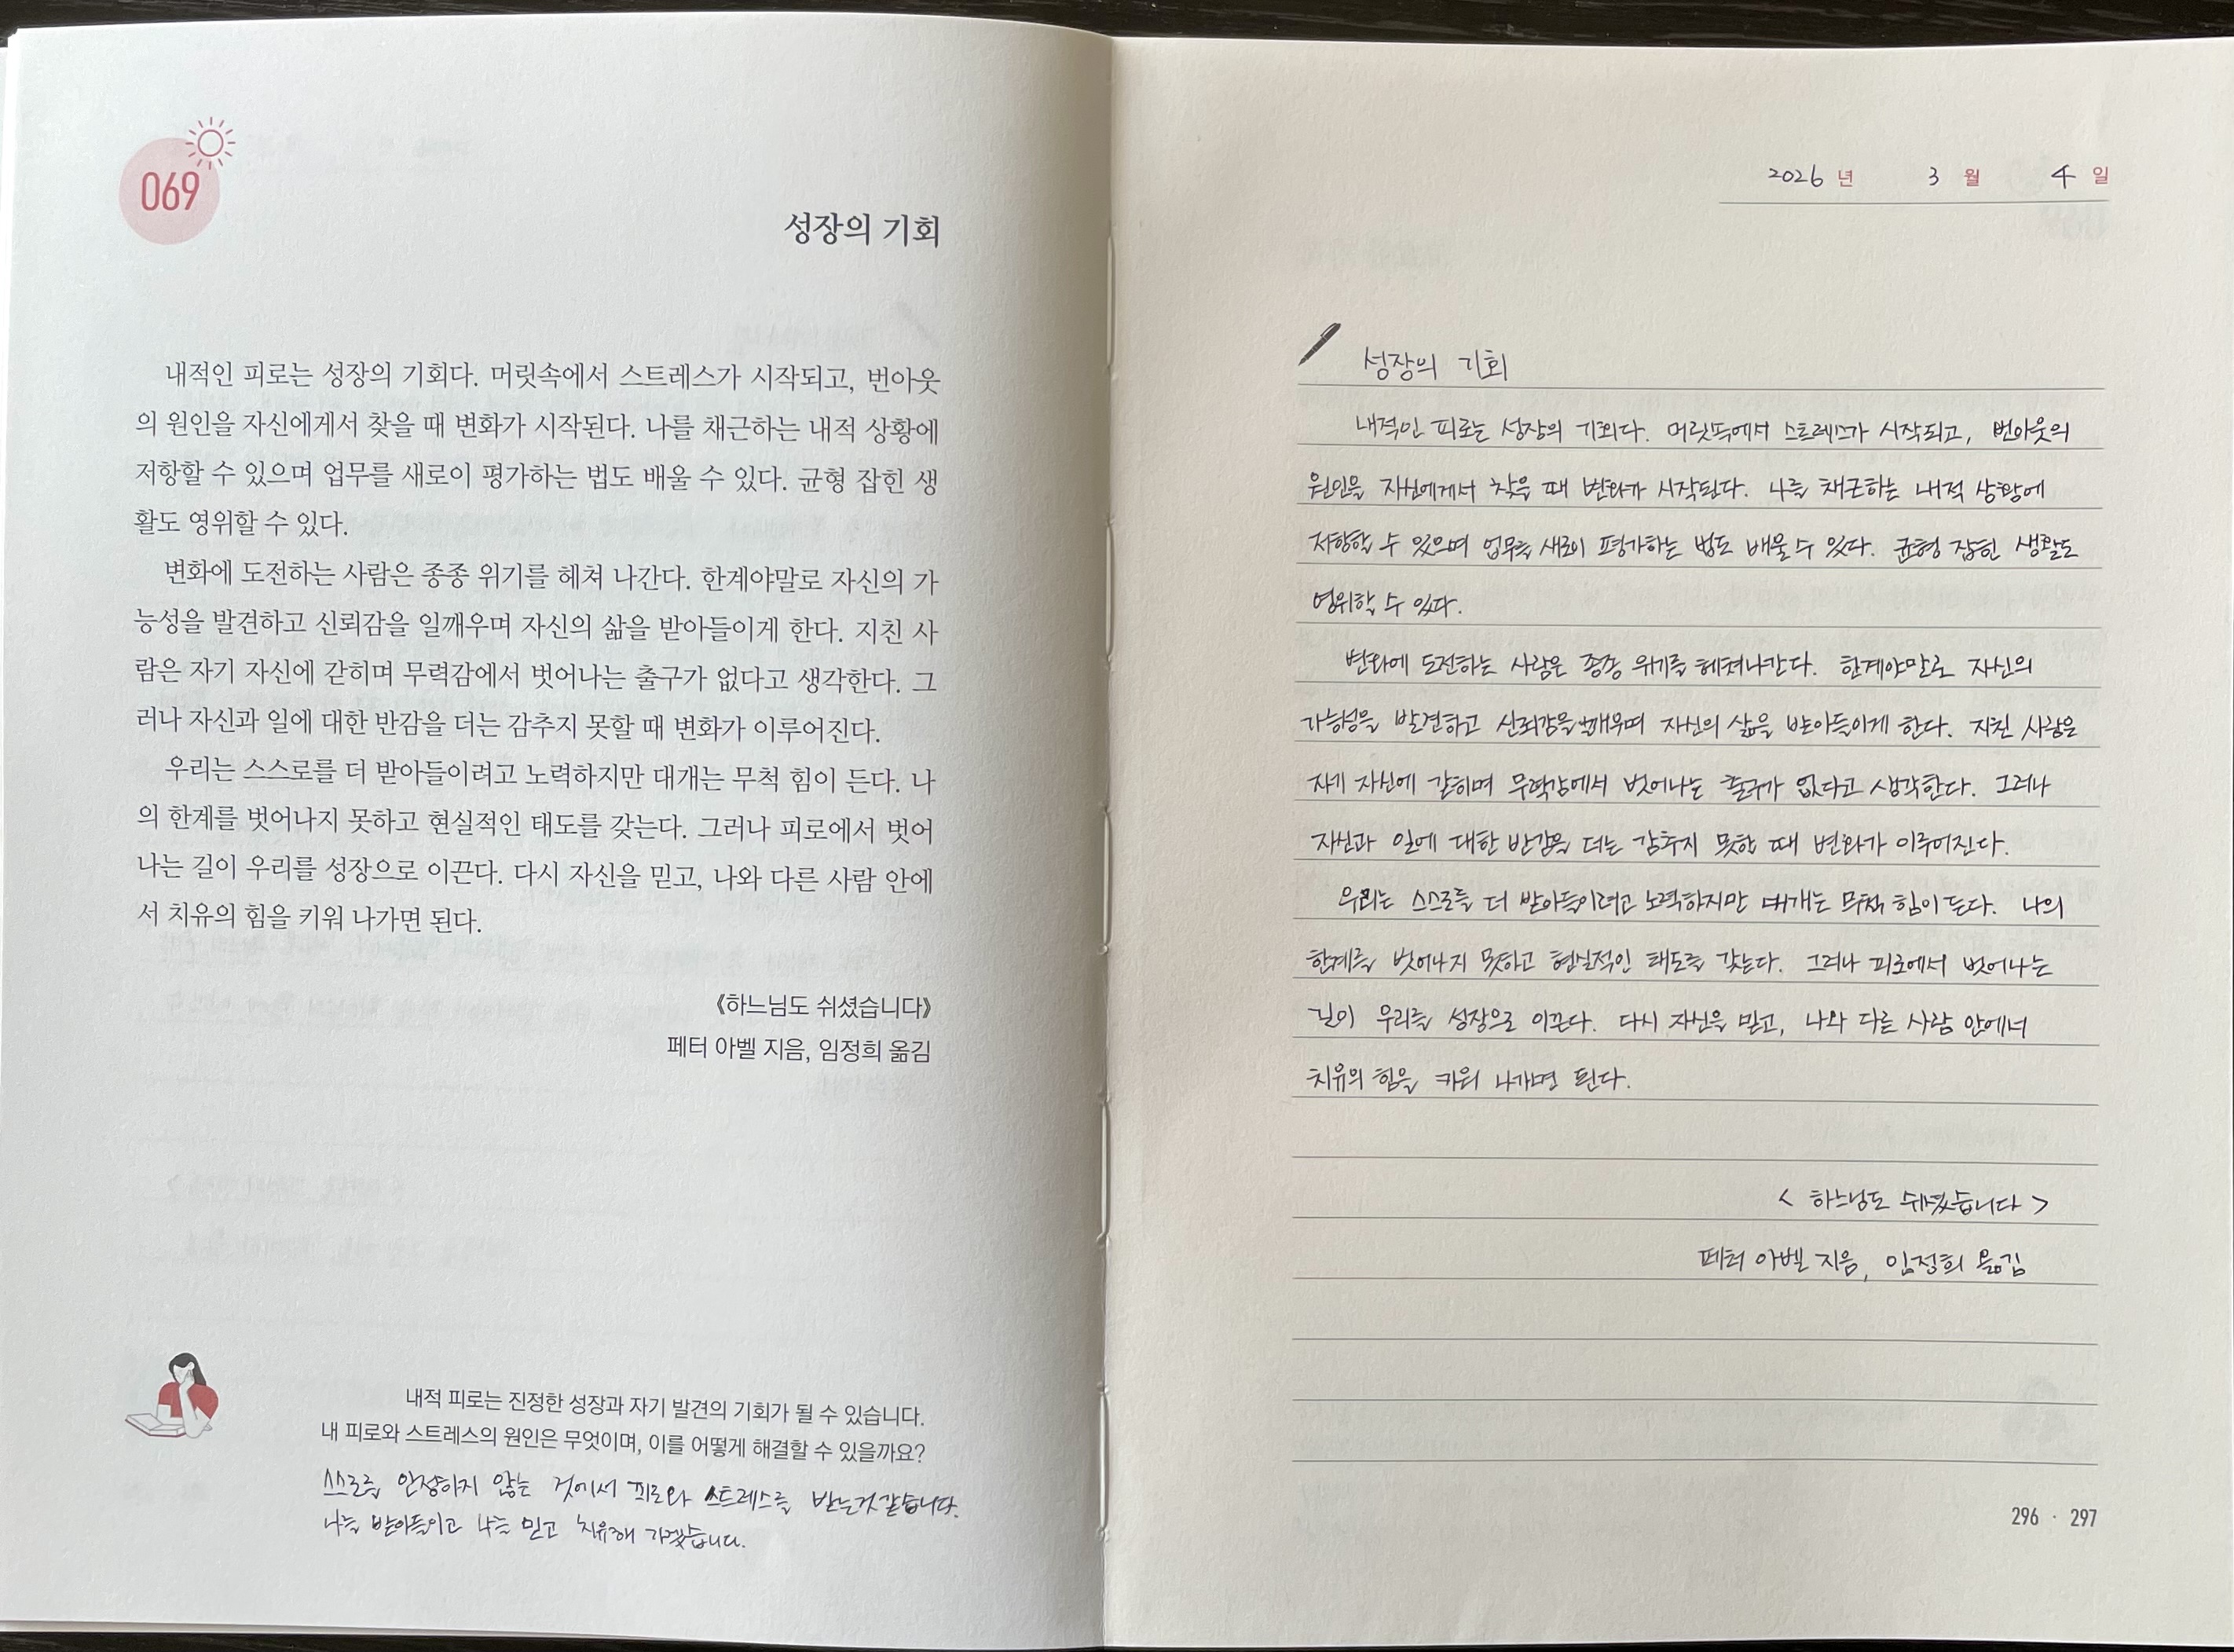 069
성장의 기회
내적인 피로는 성장의 기회다. 머릿속에서 스트레스가 시작되고, 번아웃
의 원인을 자신에게서 찾을 때 변화가 시작된다. 나를 채근하는 내적 상황에
저항할 수 있으며 업무를 새로이 평가하는 법도 배울 수 있다. 균형 잡힌 생
활도 영위할 수 있다.
변화에 도전하는 사람은 종종 위기를 헤쳐 나간다. 한계야말로 자신의 가
능성을 발견하고 신뢰감을 일깨우며 자신의 삶을 받아들이게 한다. 지친 사
람은 자기 자신에 갇히며 무력감에서 벗어나는 출구가 없다고 생각한다. 그
러나 자신과 일에 대한 반감을 더는 감추지 못할 때 변화가 이루어진다.
우리는 스스로를 더 받아들이려고 노력하지만 대개는 무척 힘이 든다. 나
의 한계를 벗어나지 못하고 현실적인 태도를 갖는다. 그러나 피로에서 벗어
나는 길이 우리를 성장으로 이끈다. 다시 자신을 믿고, 나와 다른 사람 안에
서 치유의 힘을 키워 나가면 된다.
《하느님도 쉬셨습니다》
페터 아벨 지음, 임정희 옮김
내적 피로는 진정한 성장과 자기 발견의 기회가 될 수 있습니다.
내 피로와 스트레스의 원인은 무엇이며, 이를 어떻게 해결할 수 있을까요?
스스로를 인정하지 않는 것에서 피로와 스트레스를 받는것 같습니다.
나를 받아들이고 나를 믿고 치유해 가겠습니다.
2026 년 3 월 4 일
성장의 기회
내적인 피로는 성장의 기회다. 머릿속에서 스트레스가 시작되고, 번아웃의
원인을 자신에게서 찾을 때 변화가 시작된다. 나를 채근하는 내적 상황에
저항할 수 있으며 업무를 새로이 평가하는 법도 배울 수 있다. 균형 잡힌 생활도
영위할 수 있다.
변화에 도전하는 사람은 종종 위기를 헤쳐나간다. 한계야말로 자신의
가능성을 발견하고 신뢰감을 깨우며 자신의 삶을 받아들이게 한다. 지친 사람은
자기 자신에 갇히며 무력감에서 벗어나는 출구가 없다고 생각한다. 그러나
자신과 일에 대한 반감을 더는 감추지 못할 때 변화가 이루어진다.
우리는 스스로를 더 받아들이려고 노력하지만 대개는 무척 힘이 든다. 나의
한계를 벗어나지 못하고 현실적인 태도를 갖는다. 그러나 피로에서 벗어나는
길이 우리를 성장으로 이끈다. 다시 자신을 믿고, 나와 다른 사람 안에서
치유의 힘을 키워 나가면 된다.
< 하느님도 쉬셨습니다 >
페터 아벨 지음, 임정희 옮김
296 · 297